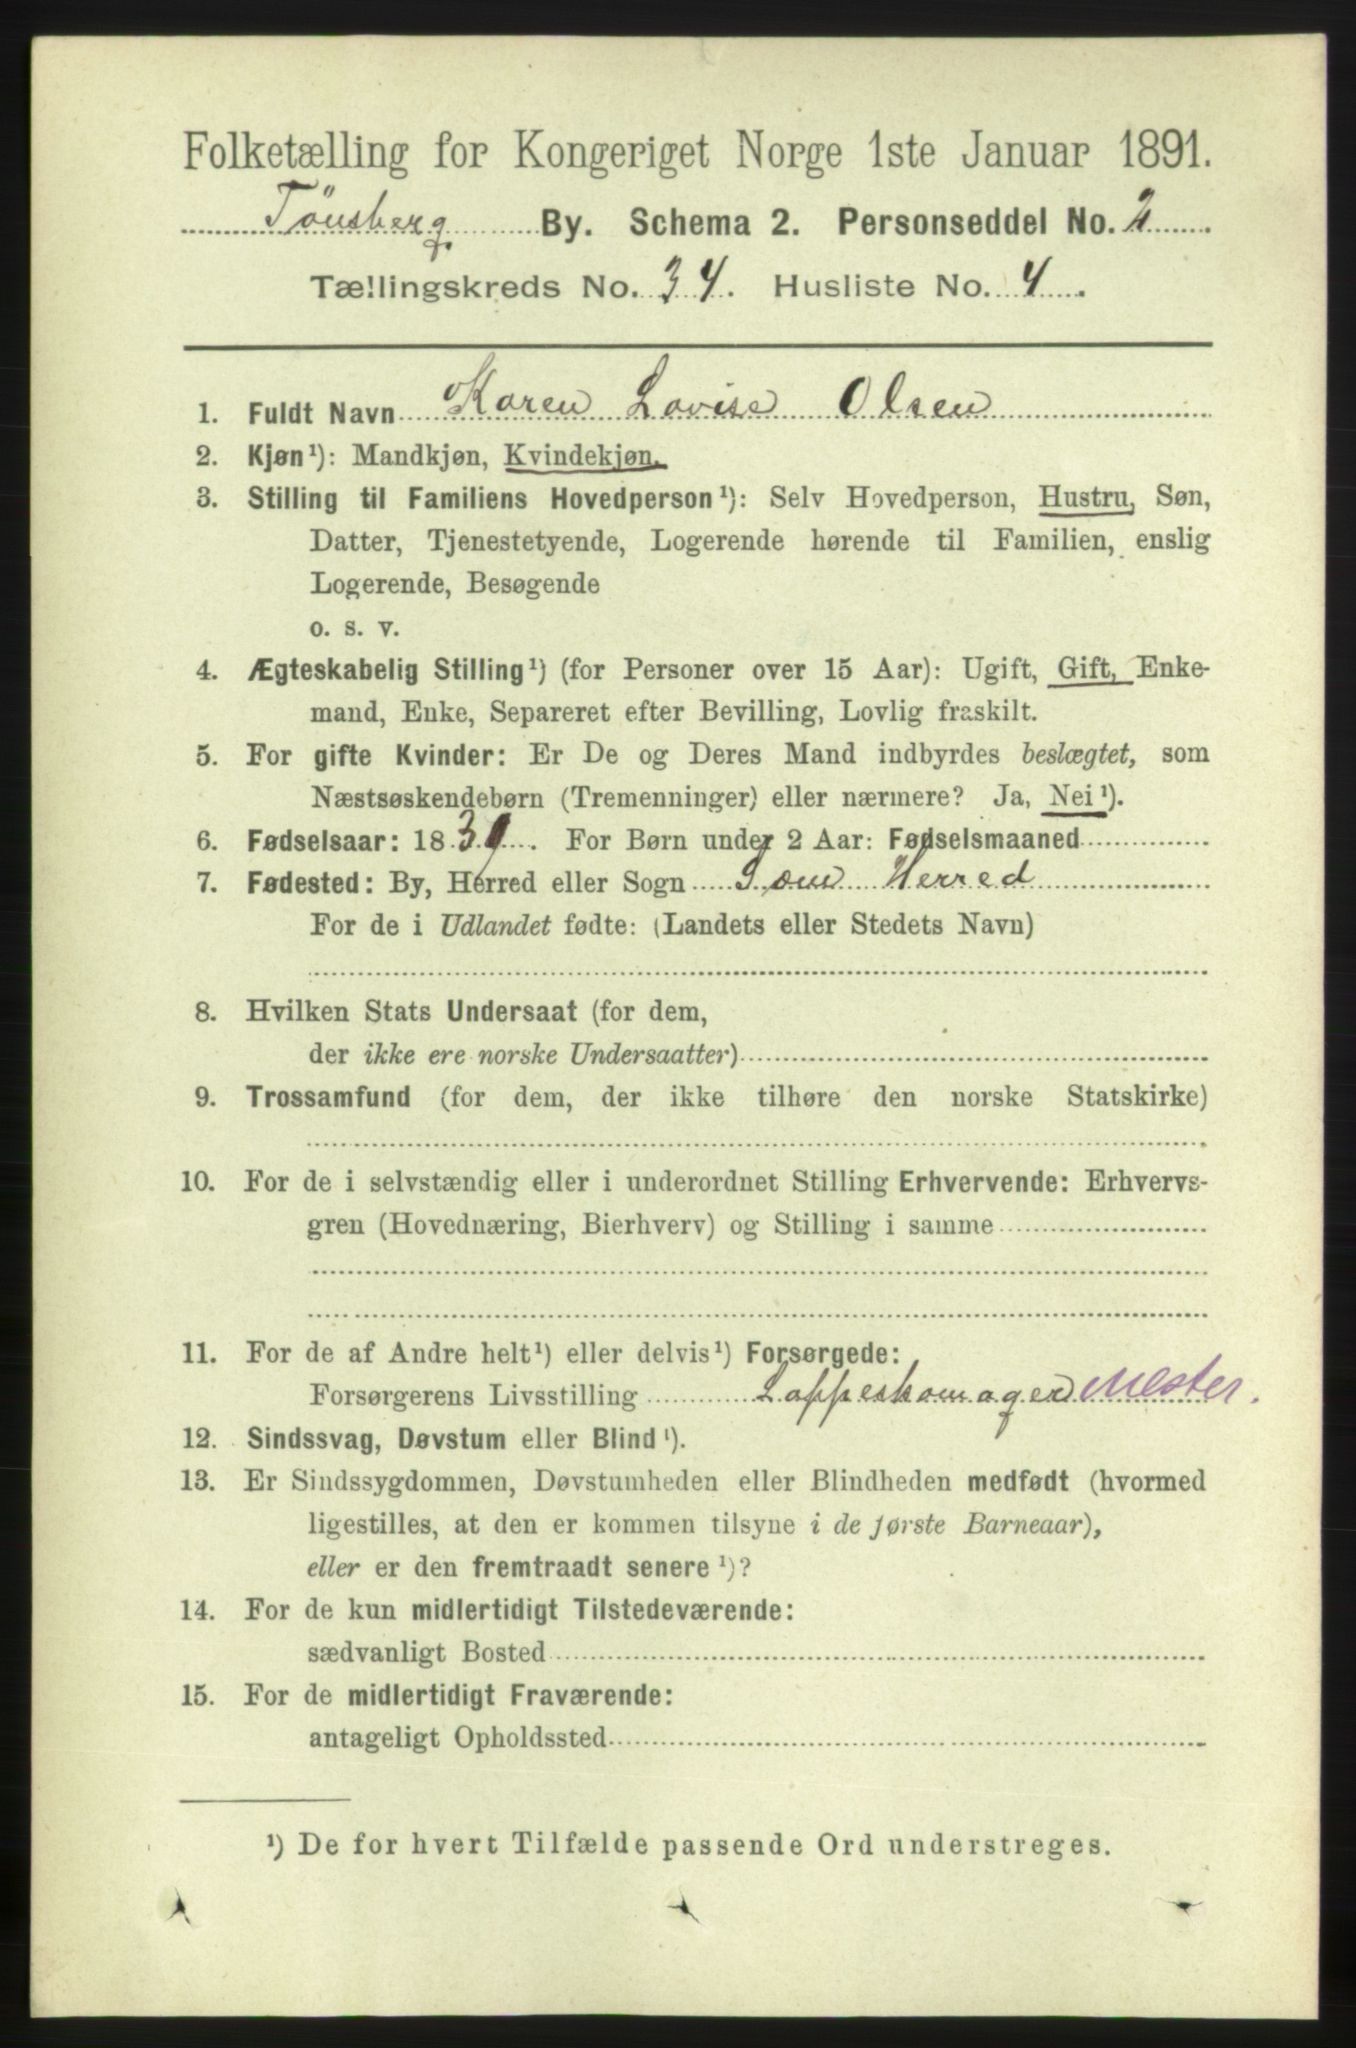 Folketælling for Kongeriget Norge 1ste Januar 1891.
Tönsberg By. Schema 2. Personseddel No. 2
Tællingskreds No. 34. Husliste No. 4.
1. Fuldt Navn Karen Lovise Olsen
2. Kjøn¹): Mandkjøn, Kvindekjøn.
3. Stilling til Familiens Hovedperson¹): Selv Hovedperson, Hustru, Søn,
Datter, Tjenestetyende, Logerende hørende til Familien, enslig
Logerende, Besøgende
o. s. v.
4. Ægteskabelig Stilling¹) (for Personer over 15 Aar): Ugift, Gift, Enke-
mand, Enke, Separeret efter Bevilling, Lovlig fraskilt.
5. For gifte Kvinder: Er De og Deres Mand indbyrdes beslægtet, som
Næstsøskendebørn (Tremenninger) eller nærmere? Ja, Nei¹).
6. Fødselsaar: 1839. For Børn under 2 Aar: Fødselsmaaned
7. Fødested: By, Herred eller Sogn Sem Herred
For de i Udlandet fødte: (Landets eller Stedets Navn)
8. Hvilken Stats Undersaat (for dem,
der ikke ere norske Undersaatter)
9. Trossamfund (for dem, der ikke tilhøre den norske Statskirke)
10. For de i selvstændig eller i underordnet Stilling Erhvervende: Erhvervs-
gren (Hovednæring, Bierhverv) og Stilling i samme
11. For de af Andre helt¹) eller delvis¹) Forsørgede:
Forsørgerens Livsstilling Lappeskomager Mester.
12. Sindssvag, Døvstum eller Blind¹).
13. Er Sindssygdommen, Døvstumheden eller Blindheden medfødt (hvormed
ligestilles, at den er kommen tilsyne i de første Barneaar),
eller er den fremtraadt senere¹)?
14. For de kun midlertidigt Tilstedeværende:
sædvanligt Bosted
15. For de midlertidigt Fraværende:
antageligt Opholdssted
¹) De for hvert Tilfælde passende Ord understreges.